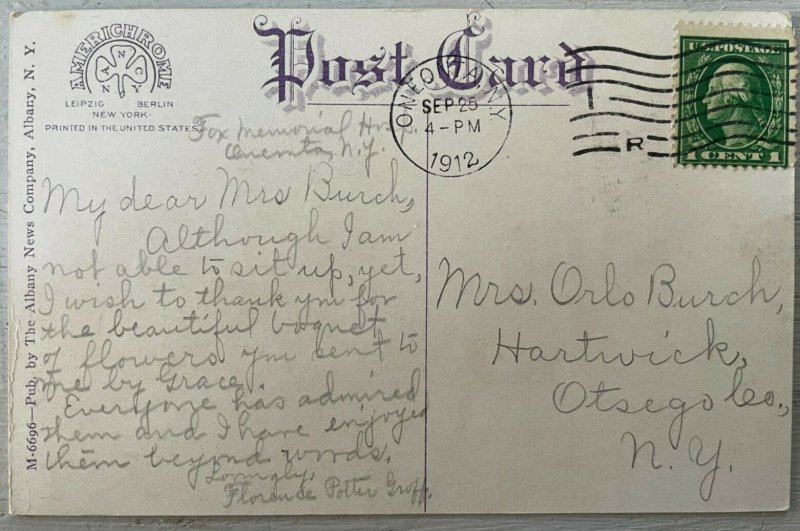 Post Card
AMERICHROME
NANCY
LEIPZIG BERLIN
NEW YORK
PRINTED IN THE UNITED STATES
M-6696—Pub. by The Albany News Company, Albany, N. Y.
ONEONTA, N.Y.
SEP 25
4-PM
1912
R
U.S. POSTAGE
1 CENT 1
Fox Memorial Hosp.
Oneonta, N.Y.
My dear Mrs Burch,
Although I am
not able to sit up, yet,
I wish to thank you for
the beautiful boquet
of flowers you sent to
me by Grace.
Everyone has admired
them and I have enjoyed
them beyond words.
Lovingly,
Florence Potter Groff.
Mrs. Orlo Burch,
Hartwick,
Otsego Co.,
N. Y.